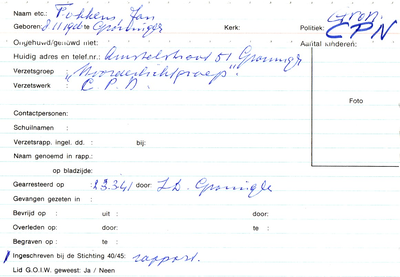 Naam etc.: Fokkens Jan Gron.
Geboren: 8 11 1906 te Groningen Kerk: Politiek: CPN
Ongehuwd/gehuwd met: Aantal kinderen:
Huidig adres en telefnr.: Amstelstraat 51 Groningen
Verzetsgroep : "Noorderlichtgroep"
Verzetswerk : C.P.N.
Foto
Contactpersonen:
Schuilnamen :
Verzetsrapp. ingel. dd. : bij:
Naam genoemd in rapp.:
op bladzijde:
Gearresteerd op : door: S.D. Groningen
Gevangen gezeten in :
Bevrijd op : uit : door:
Overleden op : door: te :
Begraven op : te :
Ingeschreven bij de Stichting 40/45: rapport.
Lid G.O.I.W. geweest: Ja / Neen